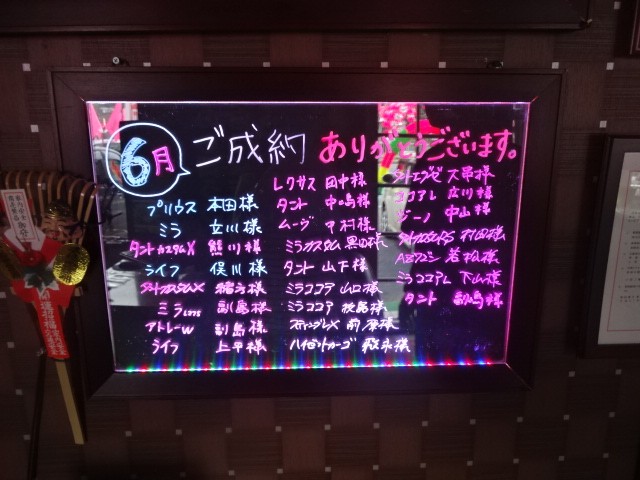 6月 ご成約 ありがとうございます。
プリウス 本田様
ミラ 立川様
タントカスタムX 熊川様
ライフ 俣川様
緒方様
ミラ 副島様
アトレーW 副島様
ライフ 上平様
レクサス 田中様
タント 中嶋様
ムーヴ 中村様
ミラカスタム 黒田様
タント 山下様
ミラココア 山口様
ミラココア 枝島様
前原様
ハイゼットカーゴ 敷永様
大串様
ココアL 広川様
ジーノ 中山様
村田様
若松様
ミラココアL 下山様
タント 副島様